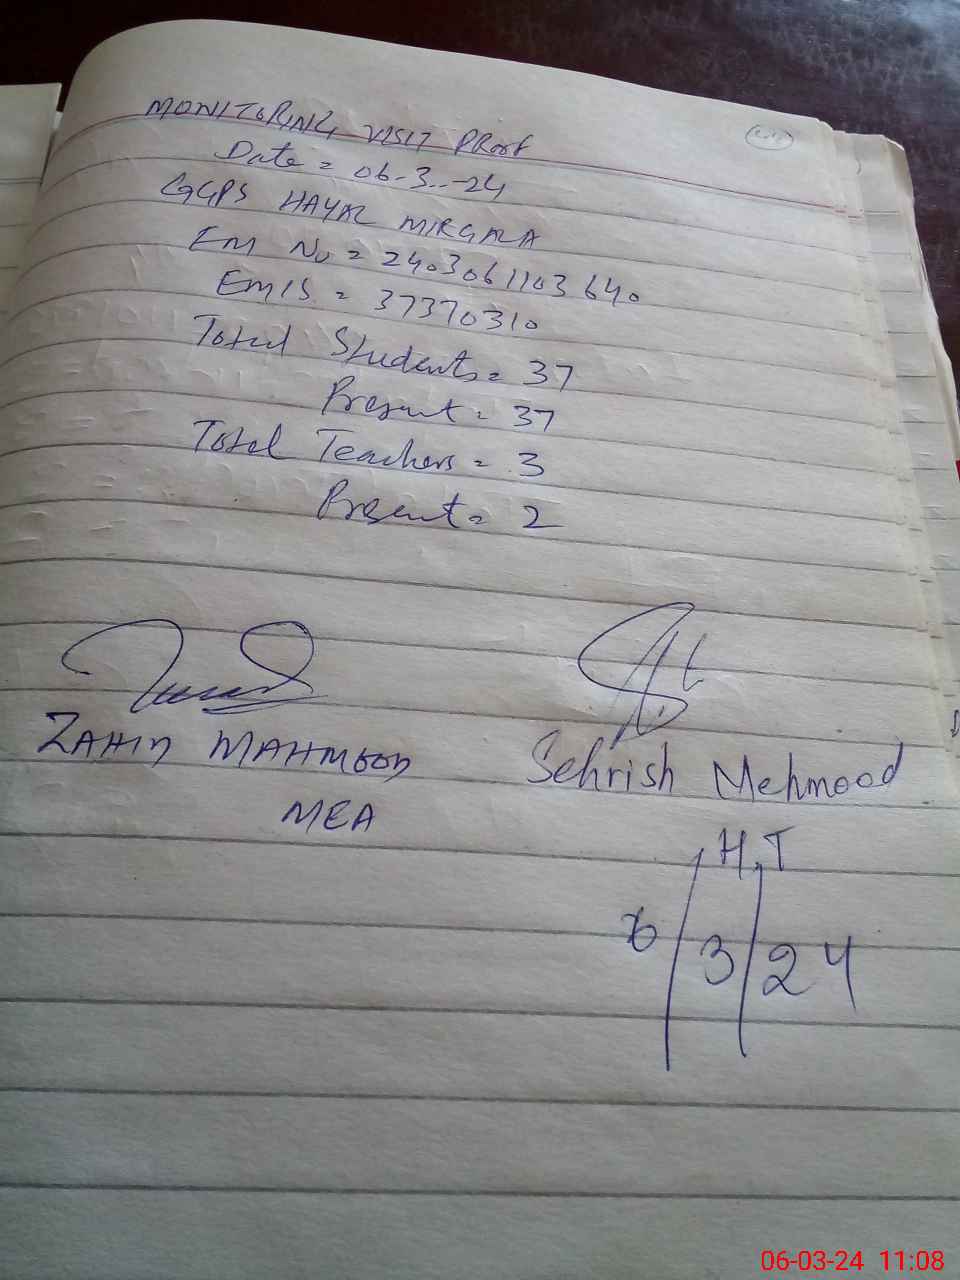 MONITORING VISIT PROOF
Date = 06-3-24
GGPS HAYAL MIRGALA
EM No = 2403061103640
EMIS = 37370310
Total Students = 37
Present = 37
Total Teachers = 3
Present = 2
ZAHID MAHMOOD
MEA
Sehrish Mehmood
H.T
6/3/24
06-03-24 11:08